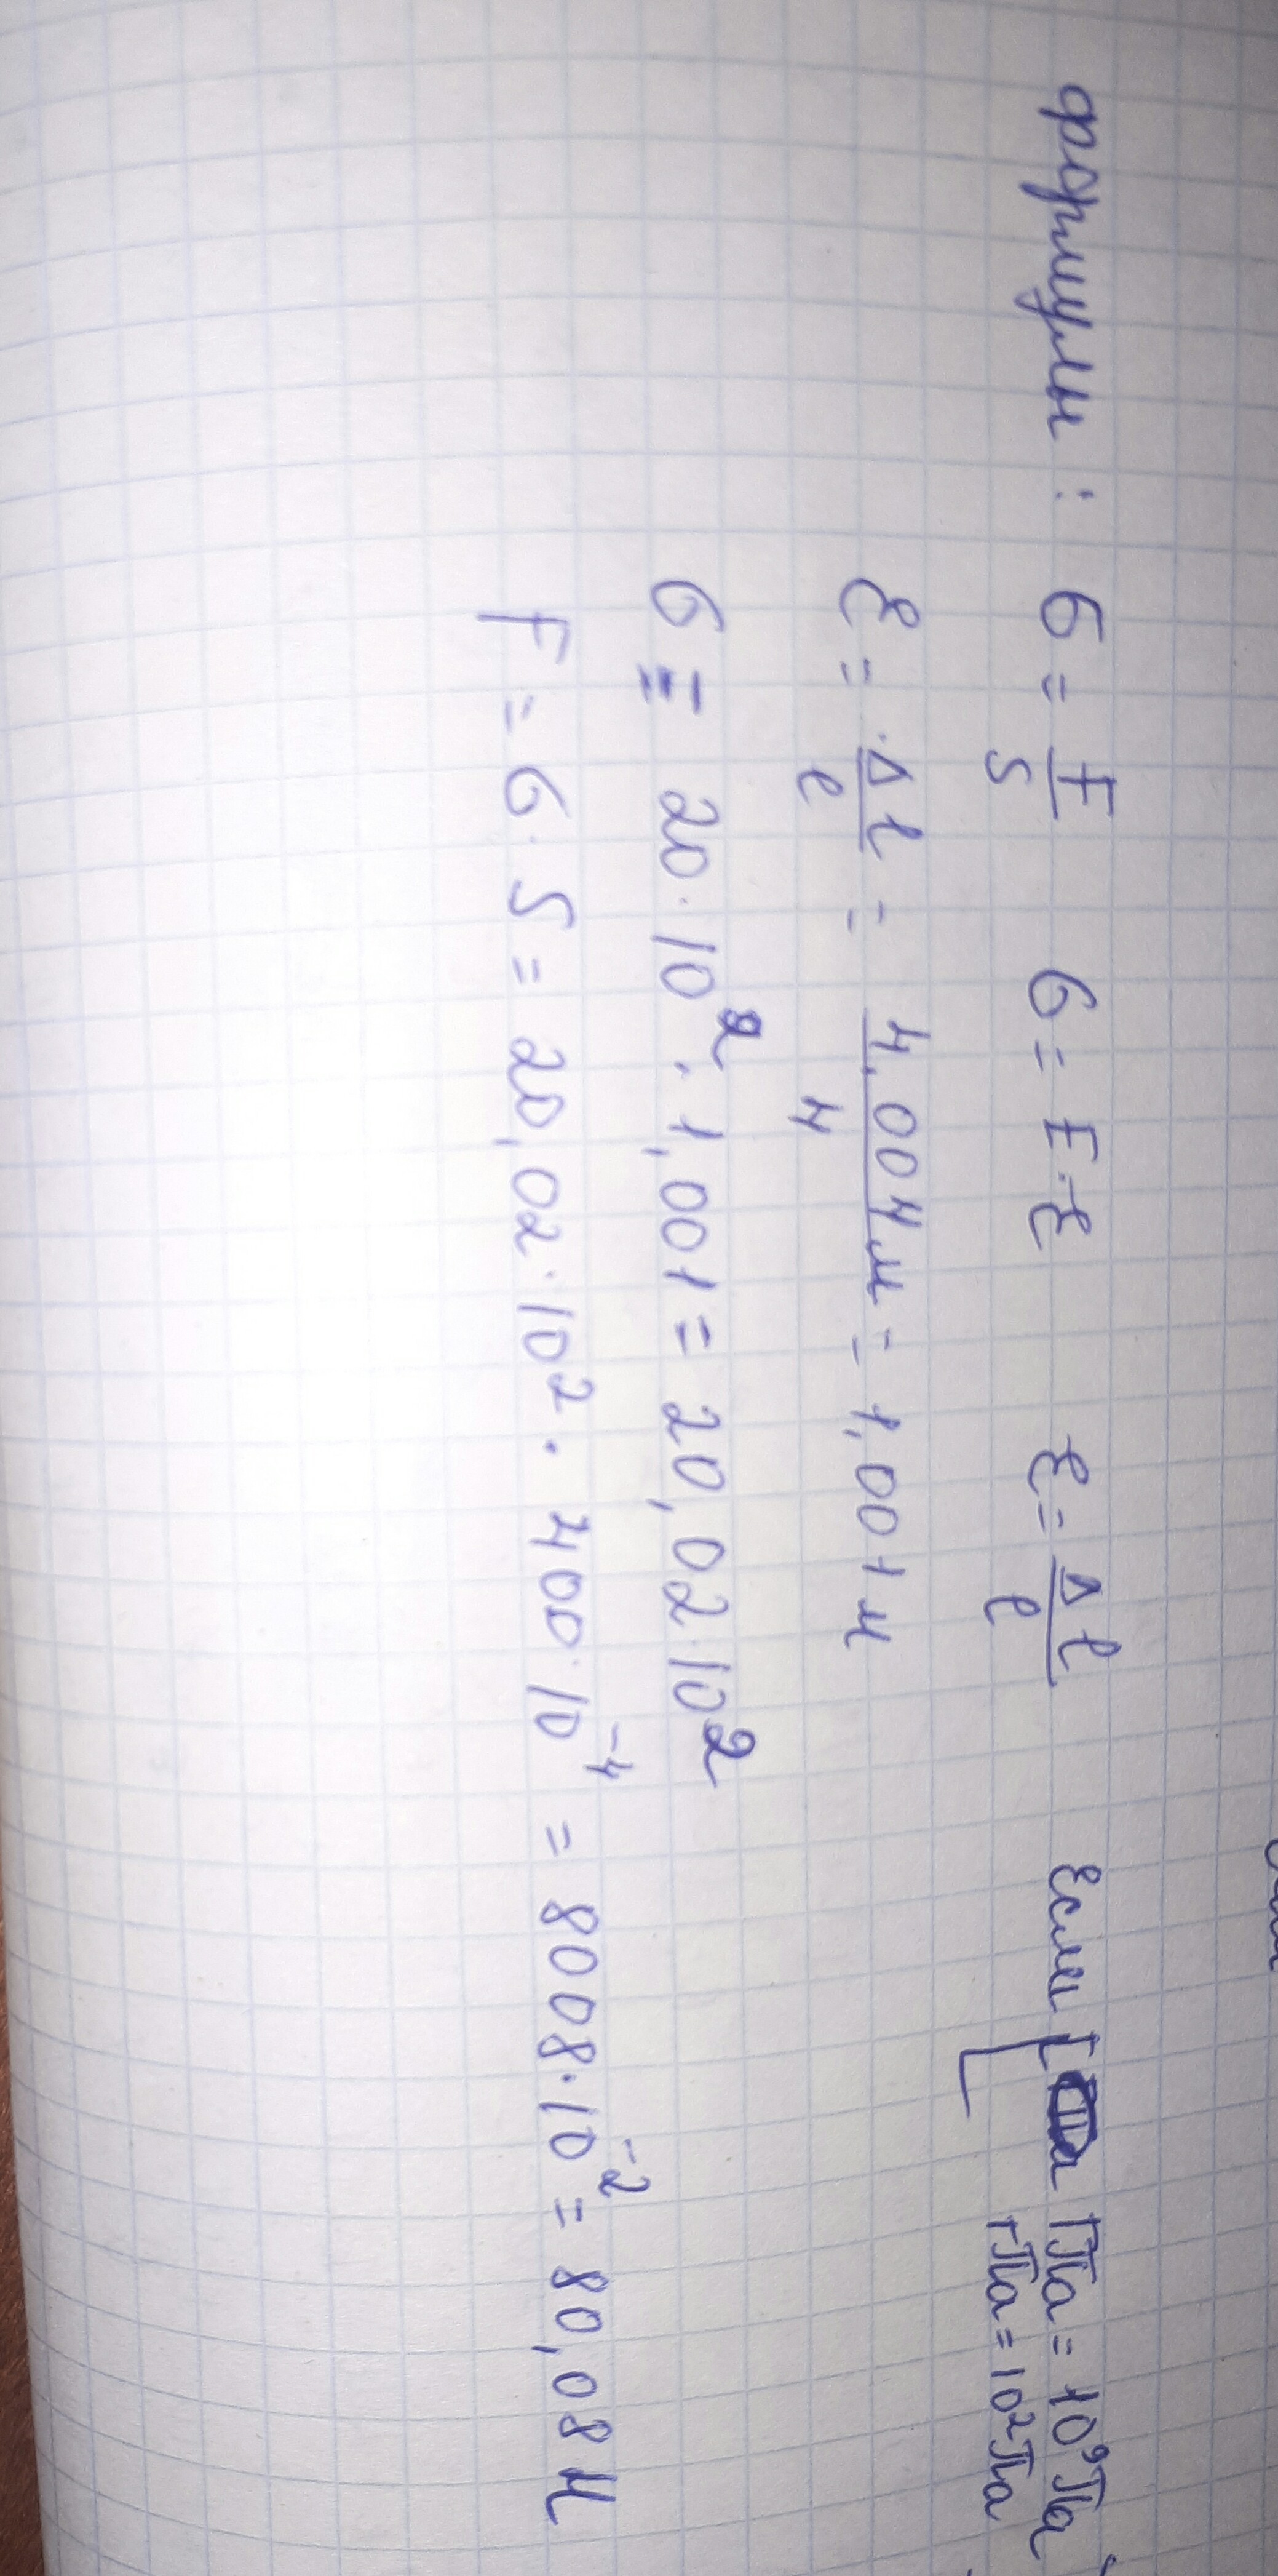 формулы : б = F/S б = E·ε ε = Δl/l Если ГПа = 10⁹Па
гПа = 10²Па
ε = Δl/l = 4,004м/4 = 1,001 м
б = 20·10² · 1,001 = 20,02·10²
F = б·S = 20,02·10² · 400·10⁻⁴ = 8008·10⁻² = 80,08 Н